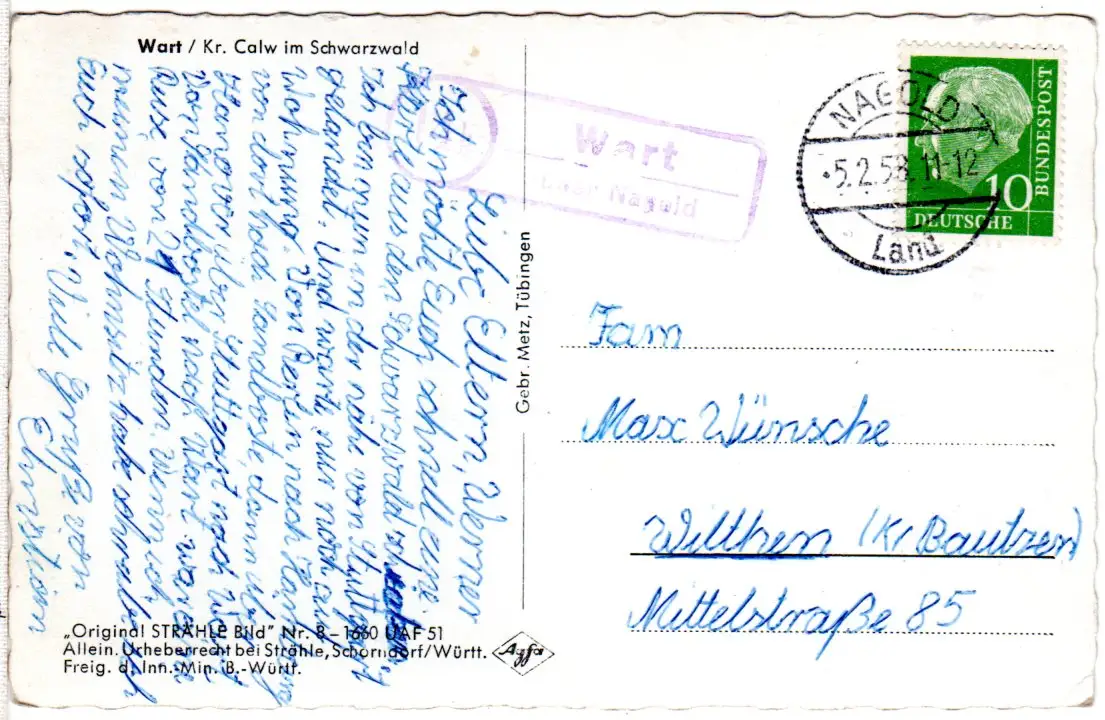 Wart / Kr. Calw im Schwarzwald
Wart
über Nagold
NAGOLD
5.2.58.11-12
Land
DEUTSCHE
BUNDESPOST
10
Liebe Eltern, Werner
Ich möchte Euch schnell eine
Karte aus dem Schwarzwald
Ich bin nun in der nähe von Stuttgart
gelandet. Und warte nur noch auf
Wohnung. Von Berlin nach Hamburg
von dort nach Sandbostel dann über
Hanover über Stuttgart nach Wart
Von Sandbostel nach Wart war eine
Reise von 21 Stunden. Wenn ich
meinen Wohnsitz habe schreibe ich
Euch sofort. Viele Grüße von
Christian
Gebr. Metz, Tübingen
Fam
Max Wünsche
Wilthen (Kr Bautzen)
Mittelstraße 85
„Original STRÄHLE Bild" Nr. 8-1660 UAF 51
Allein. Urheberrecht bei Strähle, Schorndorf/Württ.
Freig. d. Inn.-Min. B.-Württ.
Agfa